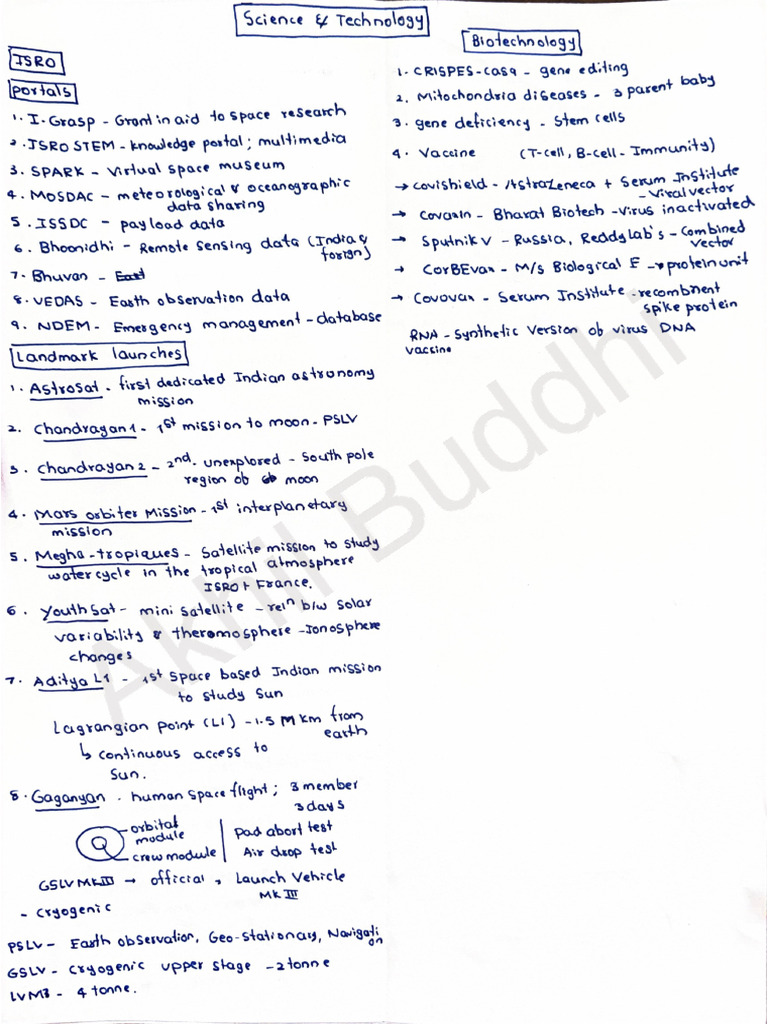 Science & Technology
ISRO
Portals
1. I-Grasp - Grant in aid to space research
2. ISRO STEM - knowledge portal; multimedia
3. SPARK - Virtual space museum
4. MOSDAC - meteorological & oceanographic
data sharing
5. ISSDC - payload data
6. Bhoonidhi - Remote sensing data (India &
forign)
7. Bhuvan -
8. VEDAS - Earth observation data
9. NDEM - Emergency management - database
Landmark launches
1. Astrosat - first dedicated Indian astronomy
mission
2. Chandrayan 1 - 1st mission to moon - PSLV
3. Chandrayan 2 - 2nd. unexplored - South pole
region of moon
4. Mars orbiter Mission - 1st interplanetary
mission
5. Megha-tropiques - Satellite mission to study
water cycle in the tropical atmosphere
ISRO + France.
6. Youthsat - mini satellite - reln b/w solar
variability & theromosphere - Ionosphere
changes
7. Aditya L1 - 1st space based Indian mission
to study Sun
Lagrangian point (L1) - 1.5 M km from
earth
↳ continuous access to
Sun.
8. Gaganyan - human space flight; 3 member
3 days
orbital
module
crew module
Pad abort test
Air drop test
GSLV MK III → official, Launch Vehicle
MK III
- cryogenic
PSLV - Earth observation, Geo-stationary, Navigati
on
GSLV - Cryogenic upper stage - 2 tonne
LVM3 - 4 tonne.
Biotechnology
1. CRISPES-cas9 - gene editing
2. Mitochondria diseases - 3 parent baby
3. gene deficiency - Stem cells
4. Vaccine (T-cell, B-cell - Immunity)
→ Covishield - AstraZeneca + Serum Institute
- Viral vector
→ Covaxin - Bharat Biotech - Virus inactivated
→ Sputnik V - Russia, Reddy lab's - Combined
vector
→ CorBEvax - M/s Biological E → protein unit
→ Covovax - Serum Institute - recombinent
spike protein
RNA - Synthetic version of virus DNA
vaccine
Akhil Buddhi